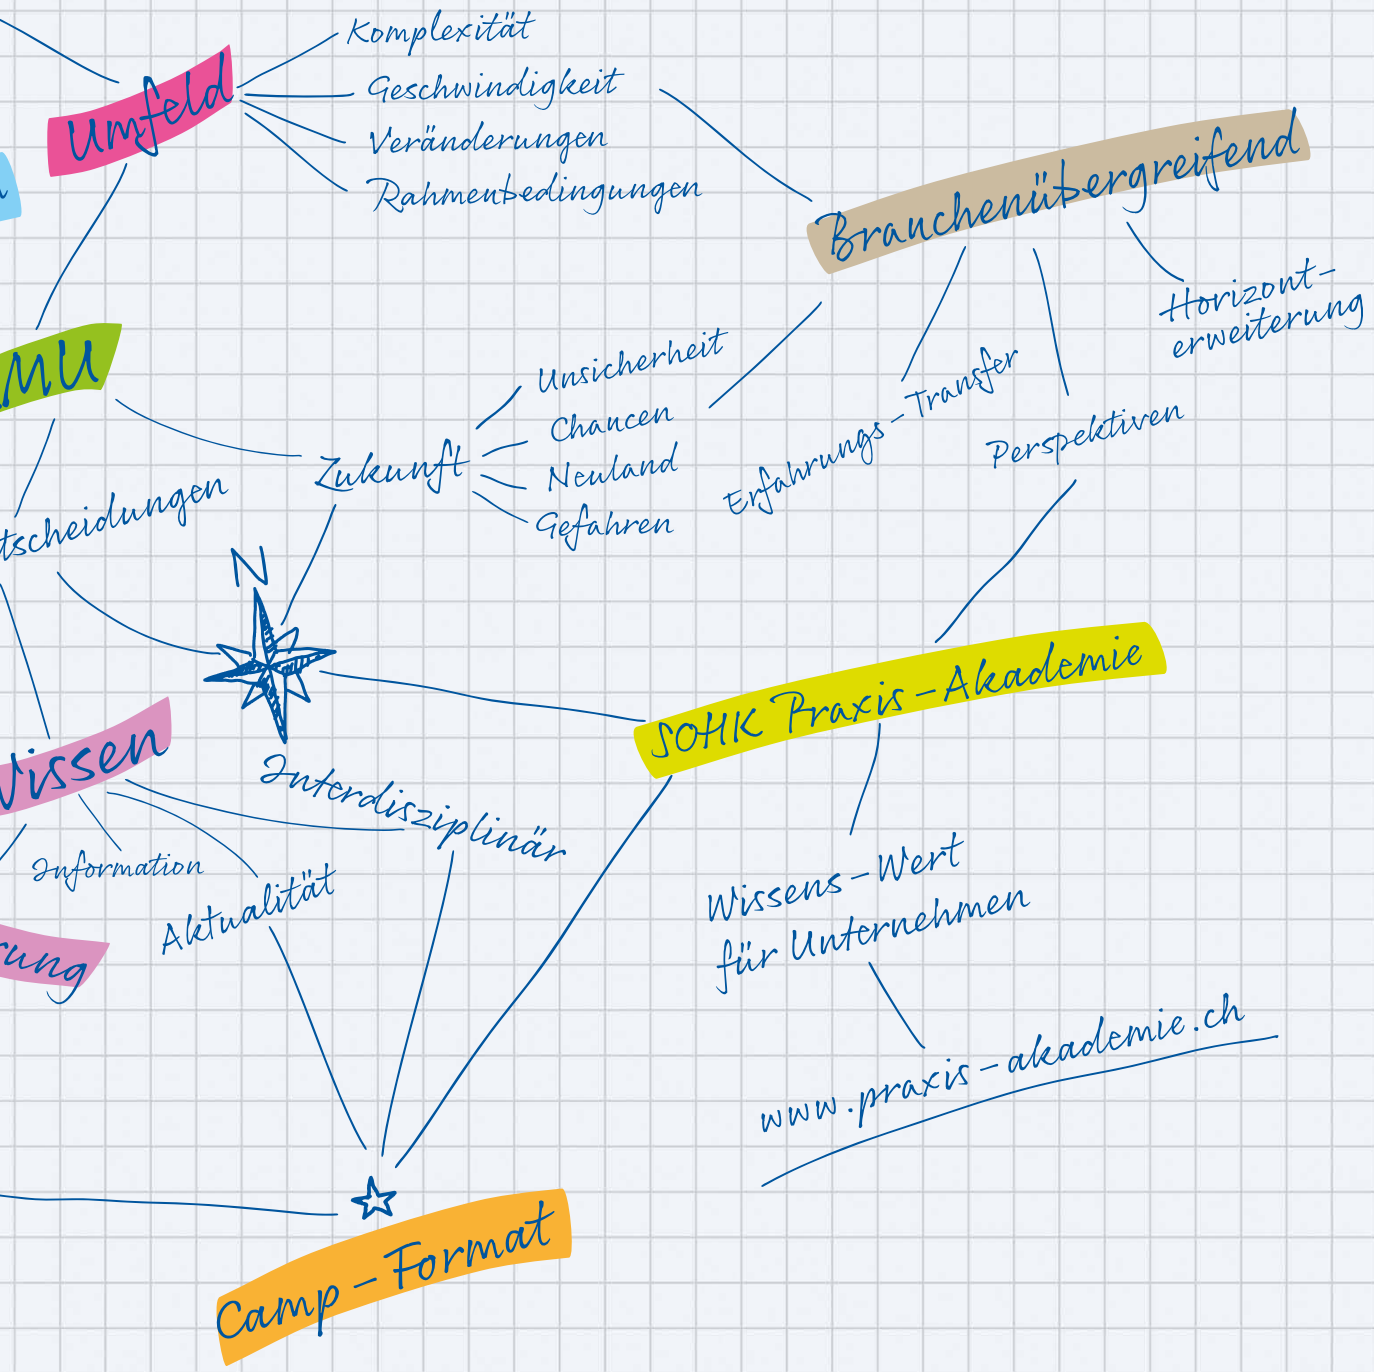 Komplexität
Umfeld
Geschwindigkeit
Veränderungen
Rahmenbedingungen
Branchenübergreifend
Horizont-
erweiterung
MU
Unsicherheit
Chancen
Zukunft
Neuland
Gefahren
Erfahrungs-Transfer
Perspektiven
tscheidungen
N
SOHK Praxis-Akademie
Wissen
Interdisziplinär
Information
Aktualität
rung
Wissens-Wert
für Unternehmen
www.praxis-akademie.ch
Camp-Format